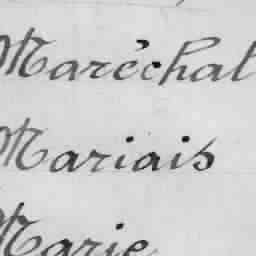 Maréchal
Mariais
Marie